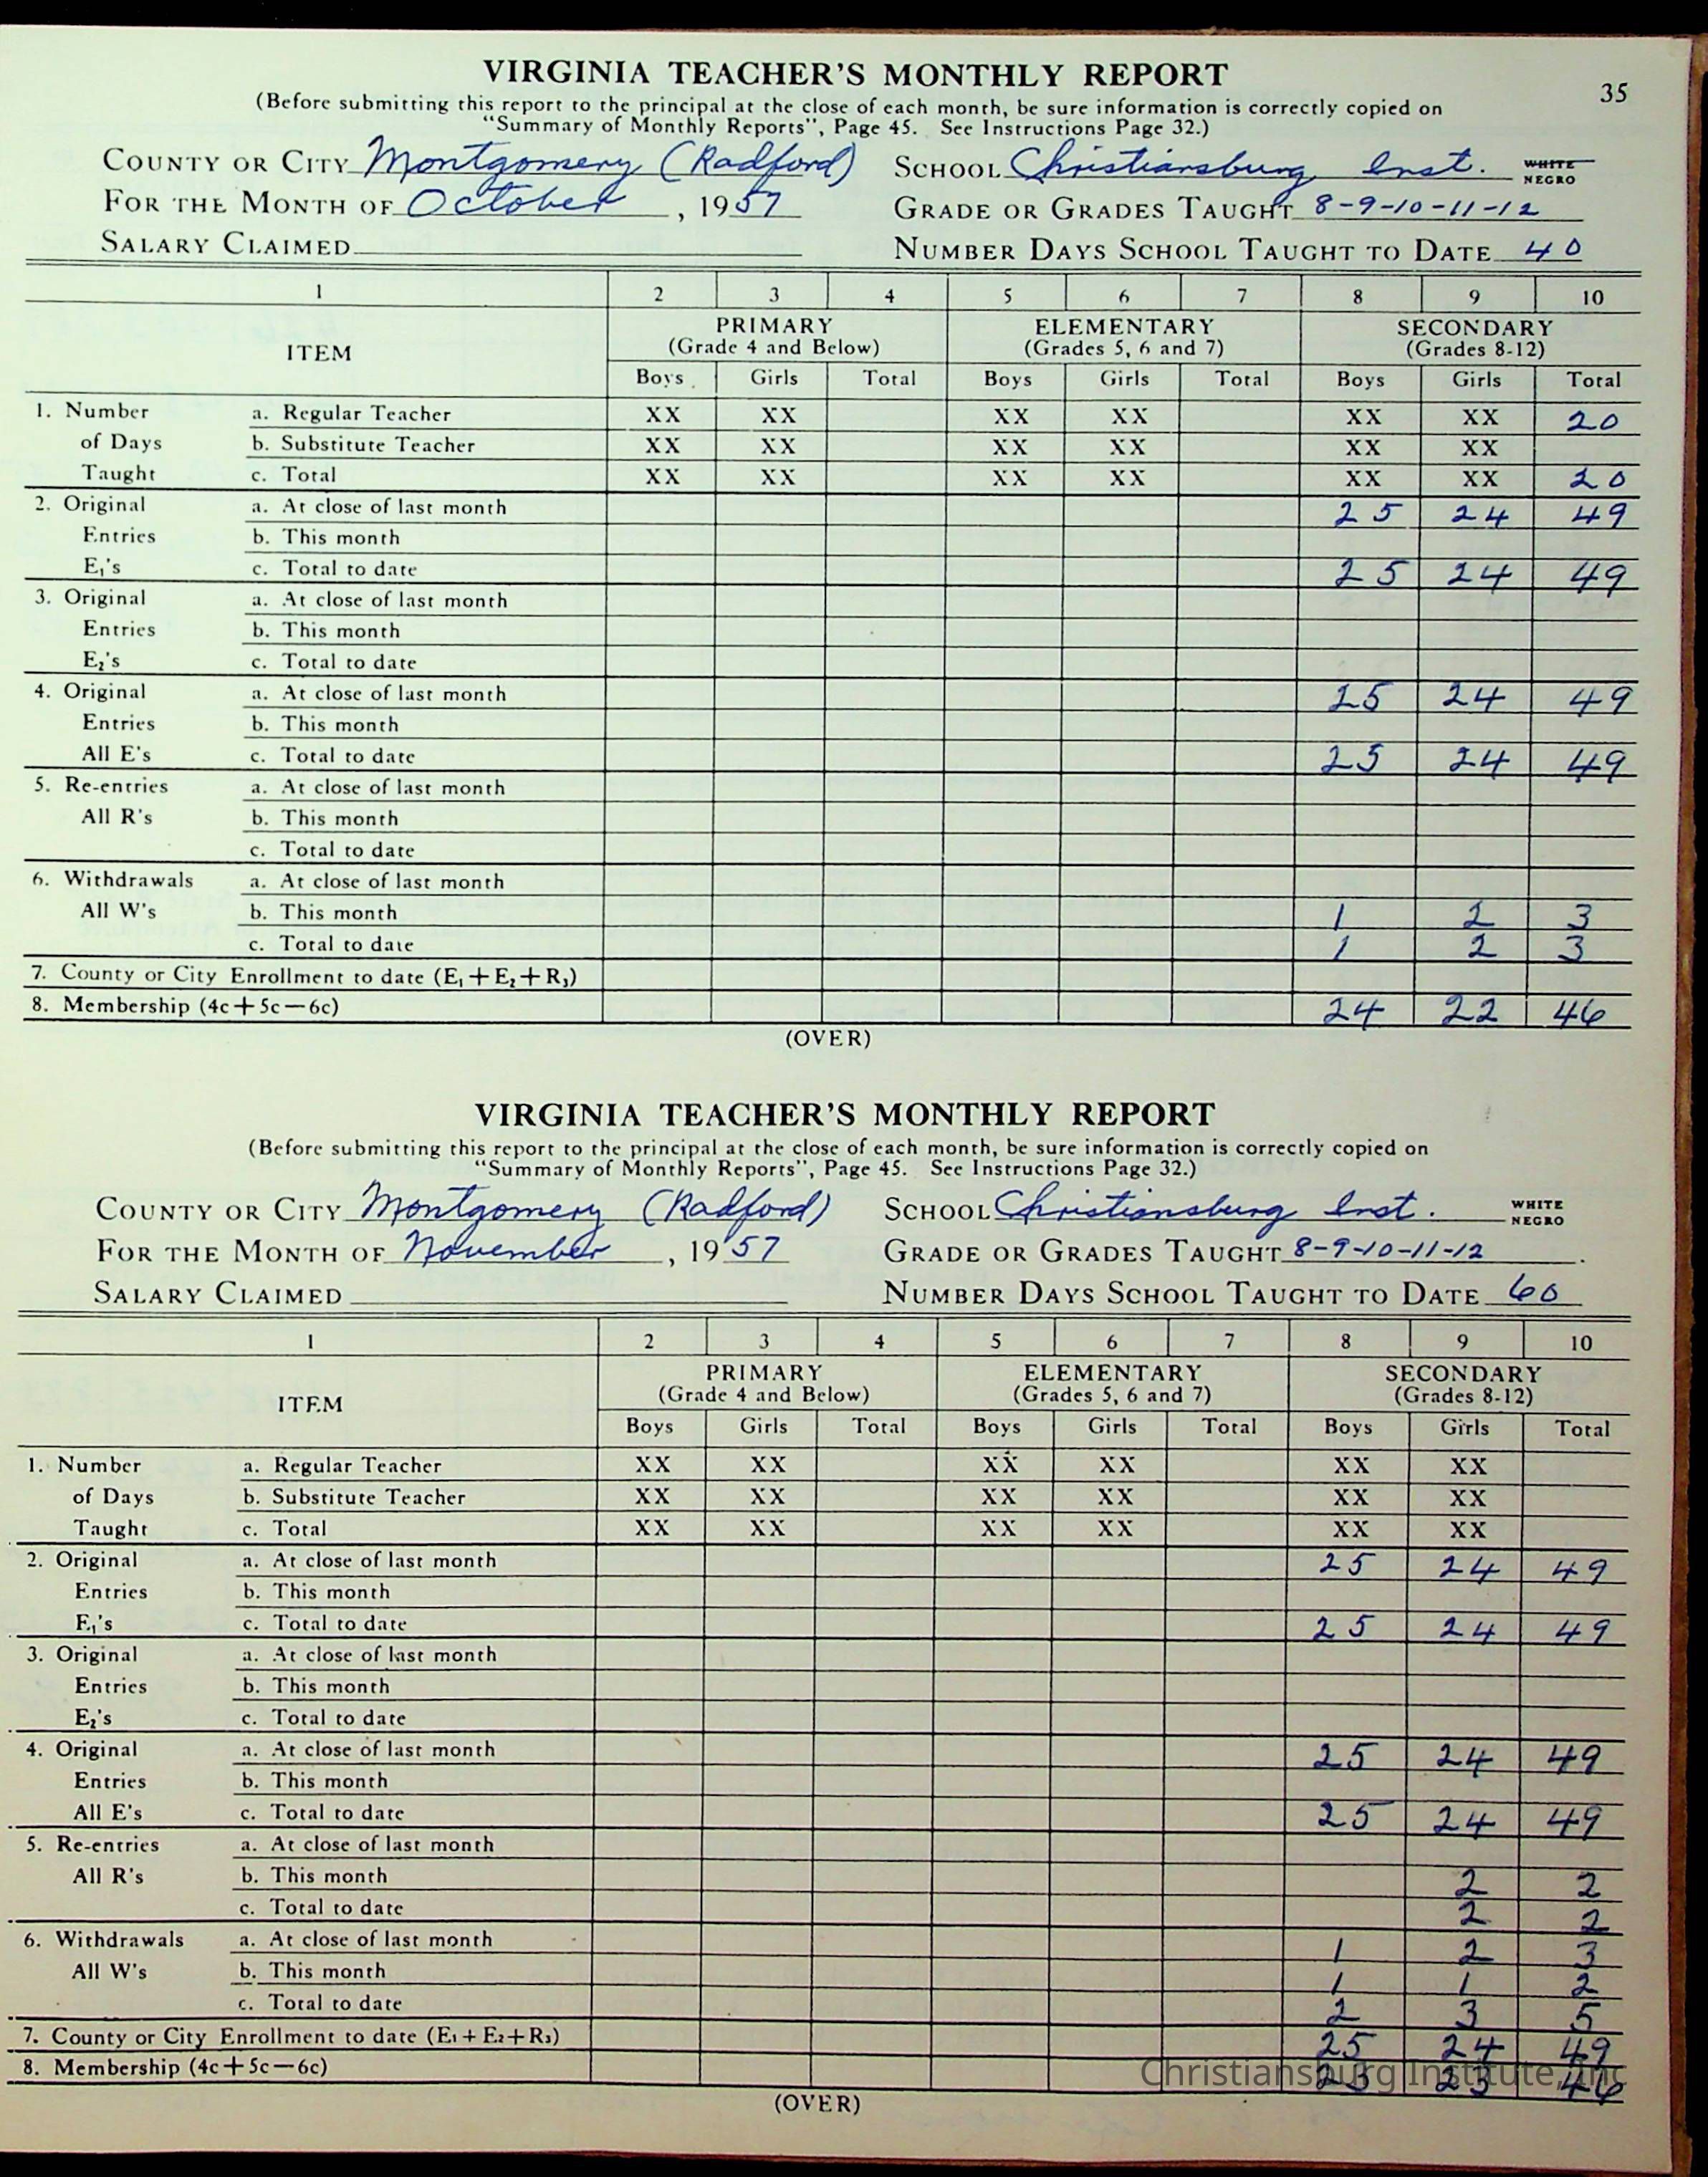 35
VIRGINIA TEACHER'S MONTHLY REPORT
(Before submitting this report to the principal at the close of each month, be sure information is correctly copied on
"Summary of Monthly Reports", Page 45. See Instructions Page 32.)
COUNTY OR CITY Montgomery (Radford) SCHOOL Christiansburg Inst. WHITE NEGRO
FOR THE MONTH OF October, 1957 GRADE OR GRADES TAUGHT 8-9-10-11-12
SALARY CLAIMED NUMBER DAYS SCHOOL TAUGHT TO DATE 40
1 2 3 4 5 6 7 8 9 10
ITEM PRIMARY ELEMENTARY SECONDARY
(Grade 4 and Below) (Grades 5, 6 and 7) (Grades 8-12)
Boys Girls Total Boys Girls Total Boys Girls Total
1. Number a. Regular Teacher XX XX XX XX XX XX 20
of Days b. Substitute Teacher XX XX XX XX XX XX
Taught c. Total XX XX XX XX XX XX 20
2. Original a. At close of last month 25 24 49
Entries b. This month
E1's c. Total to date 25 24 49
3. Original a. At close of last month
Entries b. This month
E2's c. Total to date
4. Original a. At close of last month 25 24 49
Entries b. This month
All E's c. Total to date 25 24 49
5. Re-entries a. At close of last month
All R's b. This month
c. Total to date
6. Withdrawals a. At close of last month
All W's b. This month 1 2 3
c. Total to date 1 2 3
7. County or City Enrollment to date (E1+E2+R3)
8. Membership (4c+5c—6c) 24 22 46
(OVER)
VIRGINIA TEACHER'S MONTHLY REPORT
(Before submitting this report to the principal at the close of each month, be sure information is correctly copied on
"Summary of Monthly Reports", Page 45. See Instructions Page 32.)
COUNTY OR CITY Montgomery (Radford) SCHOOL Christiansburg Inst. WHITE NEGRO
FOR THE MONTH OF November, 1957 GRADE OR GRADES TAUGHT 8-9-10-11-12.
SALARY CLAIMED NUMBER DAYS SCHOOL TAUGHT TO DATE 60
1 2 3 4 5 6 7 8 9 10
ITEM PRIMARY ELEMENTARY SECONDARY
(Grade 4 and Below) (Grades 5, 6 and 7) (Grades 8-12)
Boys Girls Total Boys Girls Total Boys Girls Total
1. Number a. Regular Teacher XX XX XX XX XX XX
of Days b. Substitute Teacher XX XX XX XX XX XX
Taught c. Total XX XX XX XX XX XX
2. Original a. At close of last month 25 24 49
Entries b. This month
E1's c. Total to date 25 24 49
3. Original a. At close of last month
Entries b. This month
E2's c. Total to date
4. Original a. At close of last month 25 24 49
Entries b. This month
All E's c. Total to date 25 24 49
5. Re-entries a. At close of last month
All R's b. This month 2 2
c. Total to date 2 2
6. Withdrawals a. At close of last month 1 2 3
All W's b. This month 1 1 2
c. Total to date 2 3 5
7. County or City Enrollment to date (E1+E2+R3) 25 24 49
8. Membership (4c+5c—6c) 23 23 46
Christiansburg Institute, Inc
(OVER)